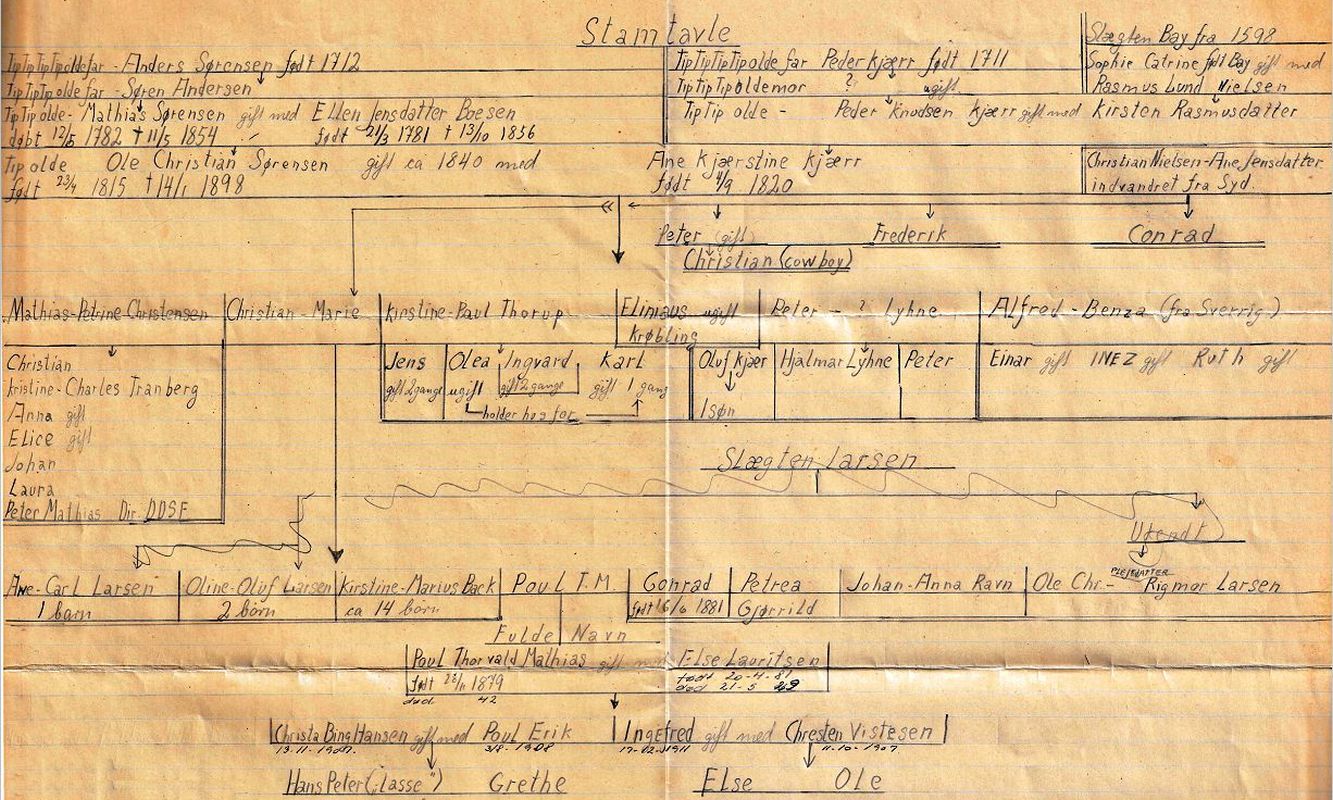 Stamtavle
Slægten Bay fra 1598
TipTipTipTipoldefar - Anders Sørensen født 1712
TipTipTipTipoldefar Peder Kjærr født 1711
Sophie Catrine født Bay gift med
TipTipTipoldefar - Søren Andersen
TipTipTipoldemor ? ugift
Rasmus Lund Nielsen
TipTipolde - Mathias Sørensen gift med Ellen Jensdatter Boesen
TipTip olde - Peder Knudsen Kjærr gift med Kirsten Rasmusdatter
døbt 12/5 1782 † 11/5 1854 født 21/3 1781 † 13/10 1856
Tip olde Ole Christian Sørensen gift ca 1840 med
Ane Kjærstine Kjærr
Christian Nielsen - Ane Jensdatter
født 23/4 1815 † 14/1 1898
født 4/9 1820
indvandret fra Syd.
Peter (gift) Frederik Conrad
Christian (cowboy)
Mathias-Petrine Christensen
Christian - Marie
Kirstine - Paul Thorup
Eliniaus ugift
Krøbling
Peter - ? Lyhne
Alfred - Benza (fra Sverrig)
Christian
Kristine - Charles Tranberg
Anna gift
Elice gift
Johan
Laura
Peter Mathias Dir. DDSF
Jens
gift 2 gange
Olea
ugift
Ingvard
gift 2 gange
Karl
gift 1 gang
holder hos for
Oluf Kjær
1 søn
Hjalmar Lyhne
Peter
Einar gift INEZ gift Ruth gift
Slægten Larsen
Ukendt
Ane - Carl Larsen
1 barn
Oline - Oluf Larsen
2 børn
Kirstine - Marius Back
ca 14 børn
Poul T.M.
Conrad
født 16/6 1881
Petrea
Gjørrild
Johan - Anna Ravn
PLEJEDATTER
Ole Chr. - Rigmor Larsen
Fulde Navn
Poul Thorvald Mathias gift med Else Lauritsen
født 28/11 1879
født 20-4-81
død 42
død 21-5 69
Christa Bing Hansen gift med Poul Erik
13-11-1907. 3/8-1908
Ingefred gift med Chresten Vistesen
17-02-1911 11-10-1907
Hans Peter („Lasse") Grethe
Else Ole